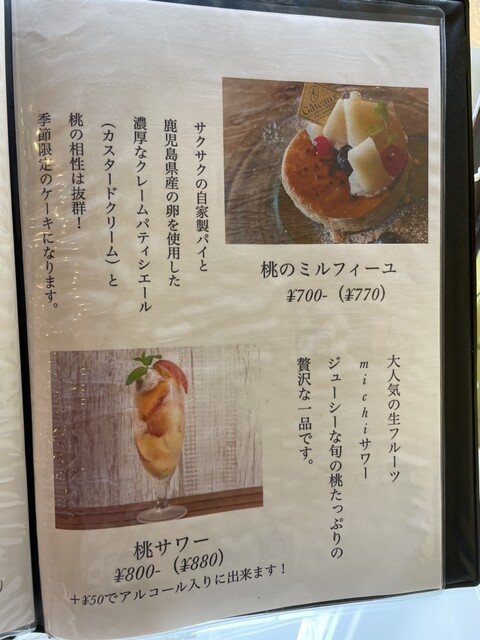 Gâteaux
サクサクの自家製パイと
鹿児島県産の卵を使用した
濃厚なクレームパティシエール
（カスタードクリーム）と
桃の相性は抜群！
季節限定のケーキになります。
桃のミルフィーユ
¥700-（¥770）
大人気の生フルーツ
michiサワー
ジューシーな旬の桃たっぷりの
贅沢な一品です。
桃サワー
¥800-（¥880）
+¥50でアルコール入りに出来ます！